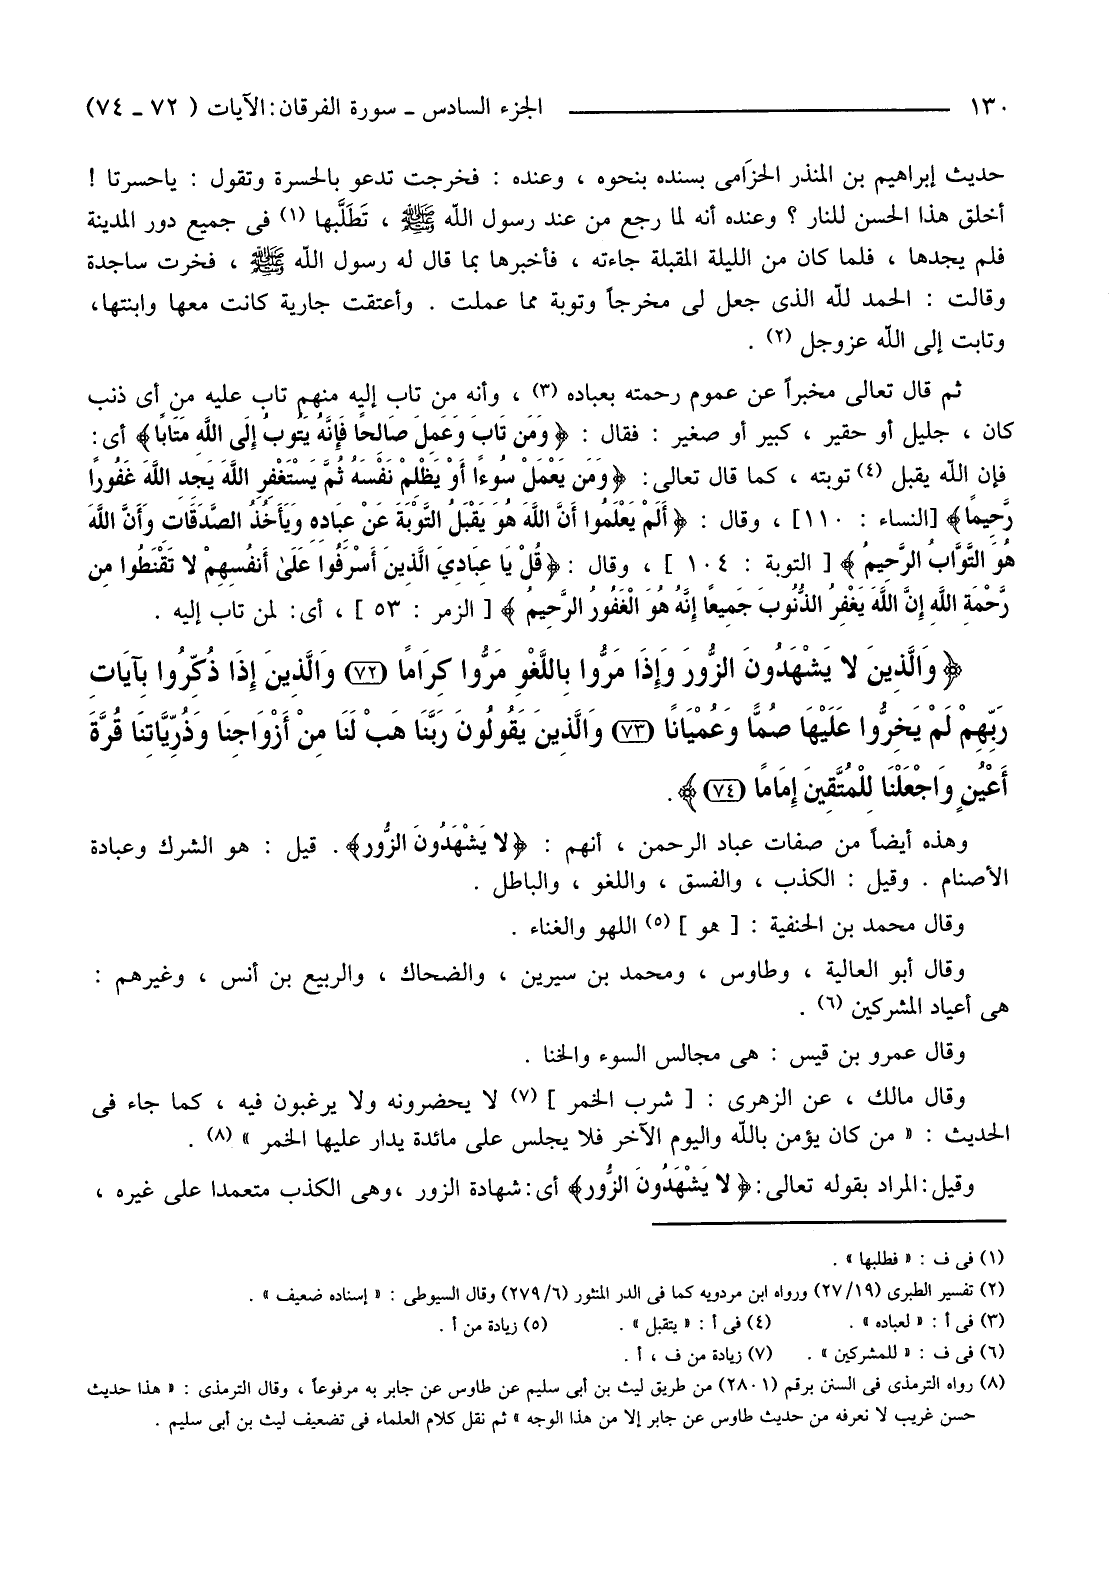 ١٣٠ ــــــــــــــــــــ الجزء السادس ـ سورة الفرقان: الآيات ( ٧٢ ـ ٧٤)
حديث إبراهيم بن المنذر الحزَامى بسنده بنحوه ، وعنده : فخرجت تدعو بالحسرة وتقول : ياحسرتا !
أخلق هذا الحسن للنار ؟ وعنده أنه لما رجع من عند رسول اللّه ﷺ ، تَطَلَّبها (١) فى جميع دور المدينة
فلم يجدها ، فلما كان من الليلة المقبلة جاءته ، فأخبرها بما قال له رسول اللّه ﷺ ، فخرت ساجدة
وقالت : الحمد للّه الذى جعل لى مخرجاً وتوبة مما عملت . وأعتقت جارية كانت معها وابنتها،
وتابت إلى اللّه عزوجل (٢) .
ثم قال تعالى مخبراً عن عموم رحمته بعباده (٣) ، وأنه من تاب إليه منهم تاب عليه من أى ذنب
كان ، جليل أو حقير ، كبير أو صغير : فقال : ﴿ وَمَن تَابَ وَعَمِلَ صَالِحًا فَإِنَّهُ يَتُوبُ إِلَى اللَّهِ مَتَابًا﴾ أى:
فإن اللّه يقبل (٤) توبته ، كما قال تعالى: ﴿وَمَن يَعْمَلْ سُوءًا أَوْ يَظْلِمْ نَفْسَهُ ثُمَّ يَسْتَغْفِرِ اللَّهَ يَجِدِ اللَّهَ غَفُورًا
رَّحِيمًا﴾ [النساء : ١١٠] ، وقال : ﴿ أَلَمْ يَعْلَمُوا أَنَّ اللَّهَ هُوَ يَقْبَلُ التَّوْبَةَ عَنْ عِبَادِهِ وَيَأْخُذُ الصَّدَقَاتِ وَأَنَّ اللَّهَ
هُوَ التَّوَّابُ الرَّحِيمُ ﴾ [ التوبة : ١٠٤ ] ، وقال :﴿قُلْ يَا عِبَادِيَ الَّذِينَ أَسْرَفُوا عَلَىٰ أَنفُسِهِمْ لا تَقْنَطُوا مِن
رَّحْمَةِ اللَّهِ إِنَّ اللَّهَ يَغْفِرُ الذُّنُوبَ جَمِيعًا إِنَّهُ هُوَ الْغَفُورُ الرَّحِيمُ ﴾ [ الزمر : ٥٣ ] ، أى: لمن تاب إليه .
﴿ وَالَّذِينَ لا يَشْهَدُونَ الزُّورَ وَإِذَا مَرُّوا بِاللَّغْوِ مَرُّوا كِرَامًا (٧٢) وَالَّذِينَ إِذَا ذُكِّرُوا بِآيَاتِ
رَبِّهِمْ لَمْ يَخِرُّوا عَلَيْهَا صُمًّا وَعُمْيَانًا (٧٣) وَالَّذِينَ يَقُولُونَ رَبَّنَا هَبْ لَنَا مِنْ أَزْوَاجِنَا وَذُرِّيَّاتِنَا قُرَّةَ
أَعْيُنٍ وَاجْعَلْنَا لِلْمُتَّقِينَ إِمَامًا (٧٤)﴾ .
وهذه أيضاً من صفات عباد الرحمن ، أنهم : ﴿لا يَشْهَدُونَ الزُّورَ﴾ . قيل : هو الشرك وعبادة
الأصنام . وقيل : الكذب ، والفسق ، واللغو ، والباطل .
وقال محمد بن الحنفية : [ هو ] (٥) اللهو والغناء .
وقال أبو العالية ، وطاوس ، ومحمد بن سيرين ، والضحاك ، والربيع بن أنس ، وغيرهم :
هى أعياد المشركين (٦) .
وقال عمرو بن قيس : هى مجالس السوء والخنا .
وقال مالك ، عن الزهرى : [ شرب الخمر ] (٧) لا يحضرونه ولا يرغبون فيه ، كما جاء فى
الحديث : « من كان يؤمن باللّه واليوم الآخر فلا يجلس على مائدة يدار عليها الخمر » (٨) .
وقيل: المراد بقوله تعالى:﴿ لا يَشْهَدُونَ الزُّورَ﴾ أى: شهادة الزور ،وهى الكذب متعمدا على غيره ،
(١) فى ف : « فطلبها » .
(٢) تفسير الطبرى (٢٧/١٩) ورواه ابن مردويه كما فى الدر المنثور (٢٧٩/٦) وقال السيوطى : « إسناده ضعيف » .
(٣) فى أ : « لعباده » . (٤) فى أ : « يتقبل » . (٥) زيادة من أ .
(٦) فى ف : « للمشركين » . (٧) زيادة من ف ، أ .
(٨) رواه الترمذى فى السنن برقم (٢٨٠١) من طريق ليث بن أبى سليم عن طاوس عن جابر به مرفوعاً ، وقال الترمذى : « هذا حديث
حسن غريب لا نعرفه من حديث طاوس عن جابر إلا من هذا الوجه » ثم نقل كلام العلماء فى تضعيف ليث بن أبى سليم .